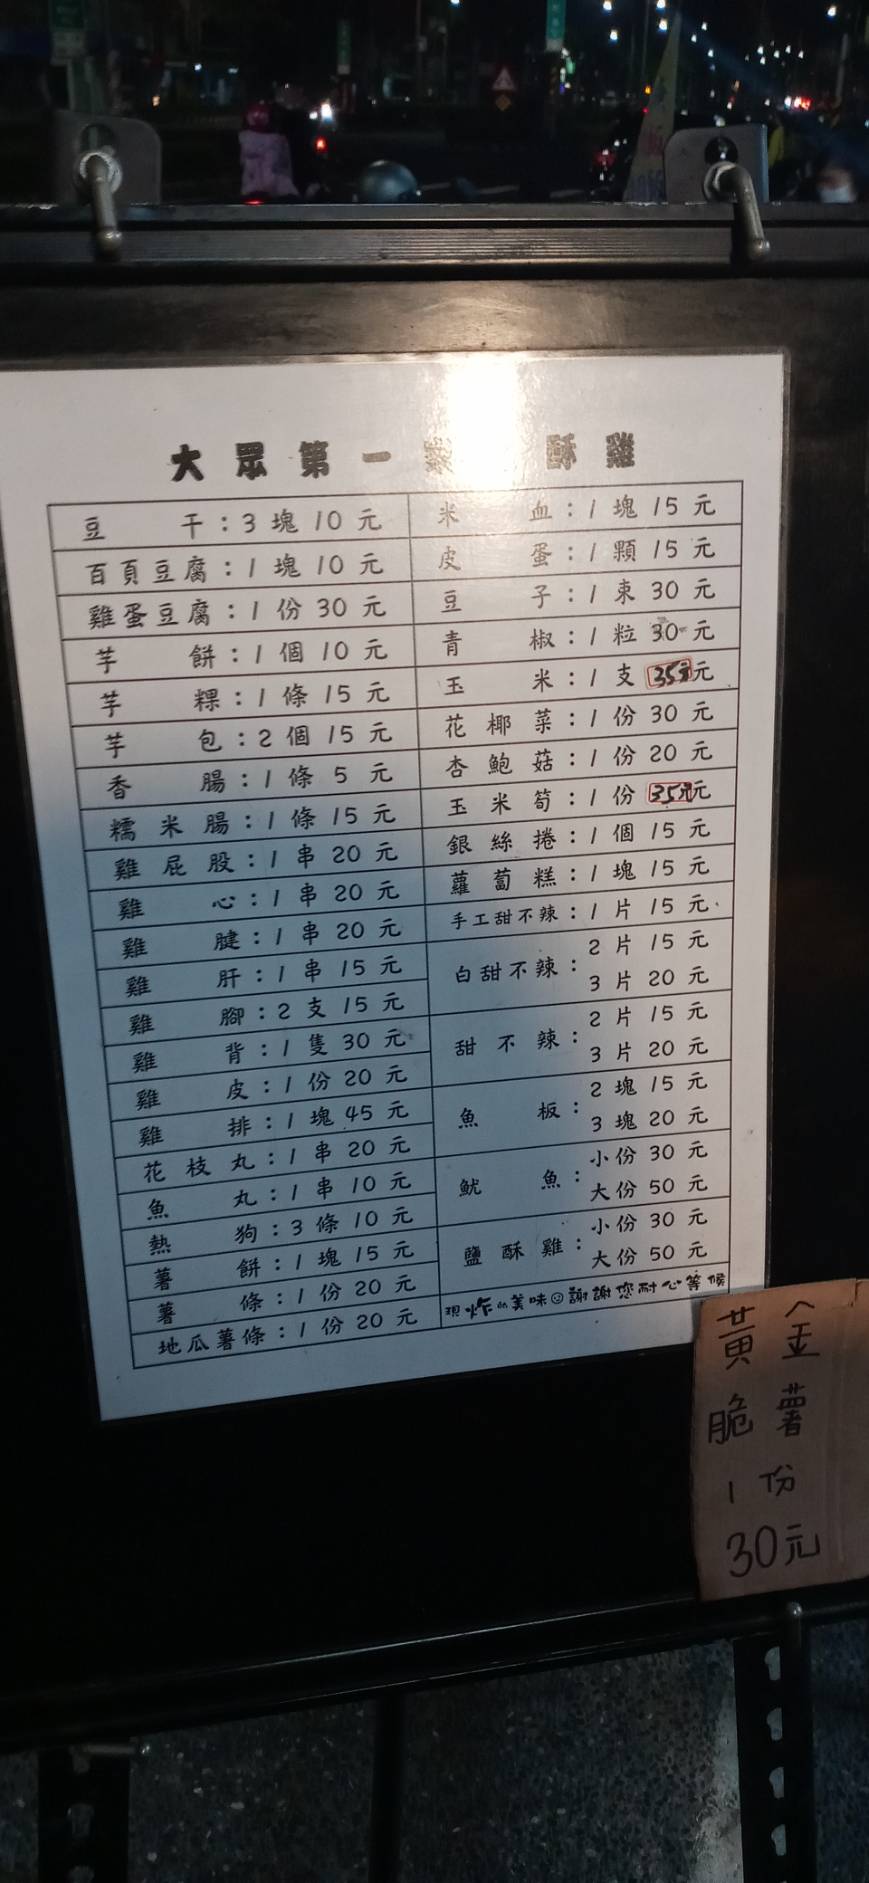 大眾第一 酥雞
豆干：3塊10元
百頁豆腐：1塊10元
雞蛋豆腐：1份30元
芋餅：1個10元
芋粿：1條15元
芋包：2個15元
香腸：1條5元
糯米腸：1條15元
雞屁股：1串20元
雞心：1串20元
雞腱：1串20元
雞肝：1串15元
雞腳：2支15元
雞背：1隻30元
雞皮：1份20元
雞排：1塊45元
花枝丸：1串20元
魚丸：1串10元
熱狗：3條10元
薯餅：1塊15元
薯條：1份20元
地瓜薯條：1份20元
米血：1塊15元
皮蛋：1顆15元
豆子：1束30元
青椒：1粒30元
玉米：1支35元元
花椰菜：1份30元
杏鮑菇：1份20元
玉米筍：1份35元元
銀絲捲：1個15元
蘿蔔糕：1塊15元
手工甜不辣：1片15元
白甜不辣：2片15元
3片20元
甜不辣：2片15元
3片20元
魚板：2塊15元
3塊20元
魷魚：小份30元
大份50元
鹽酥雞：小份30元
大份50元
現炸的美味☺謝謝您耐心等候
黃金
脆薯
1份
30元